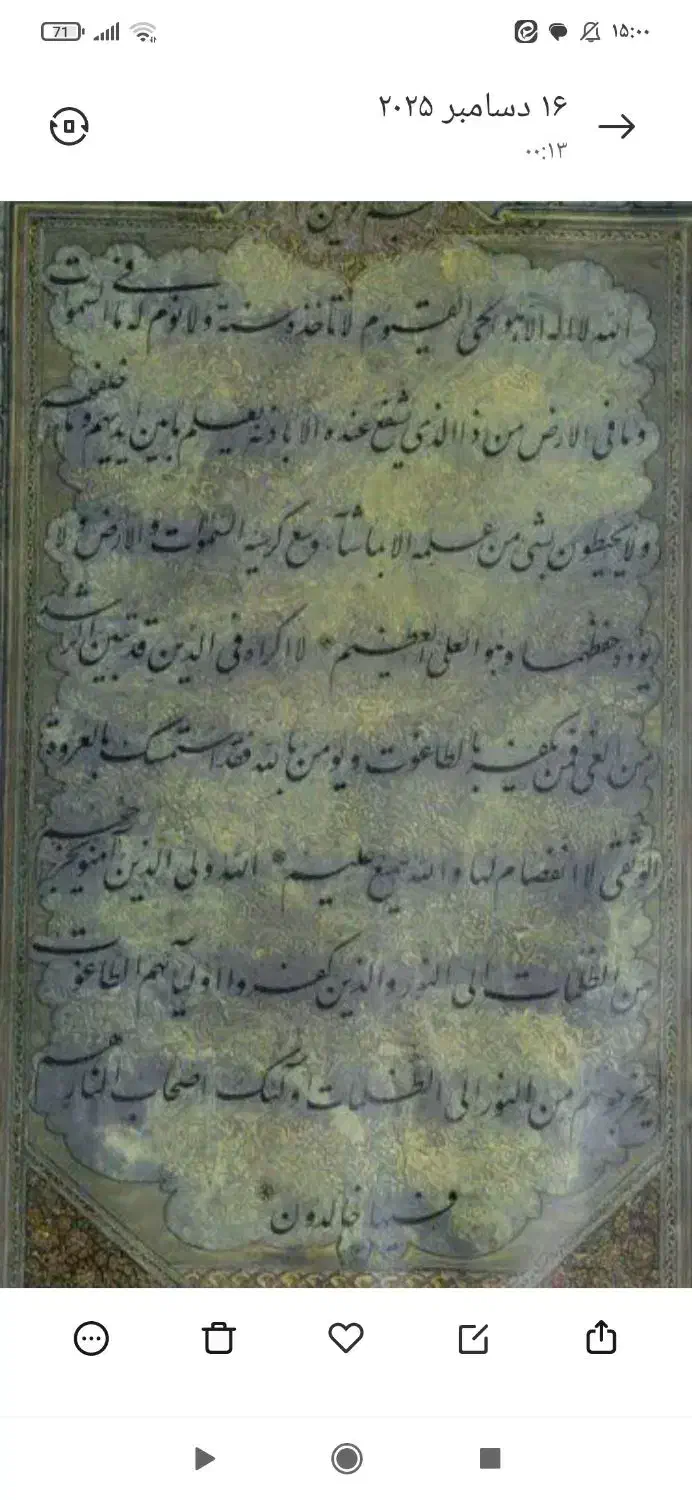 71
۱۵:۰۰
۱۶ دسامبر ۲۰۲۵
۰۰:۱۳
الله لا اله الا هو الحی القیوم لا تاخذه سنة و لا نوم له ما فی السموات
و ما فی الارض من ذا الذی یشفع عنده الا باذنه یعلم ما بین ایدیهم و ما خلفهم
و لا یحیطون بشی من علمه الا بما شآء وسع کرسیه السموات و الارض و لا
یوده حفظهما و هو العلی العظیم * لا اکراه فی الدین قد تبین الرشد
من الغی فمن یکفر بالطاغوت و یومن بالله فقد استمسک بالعروة
الوثقی لا انفصام لها و الله سمیع علیم * الله ولی الذین امنو یخرجهم
من الظلمات الی النور و الذین کفروا اولیآئهم الطاغوت
یخرجونهم من النور الی الظلمات اولئک اصحاب النار هم
فیها خالدون *